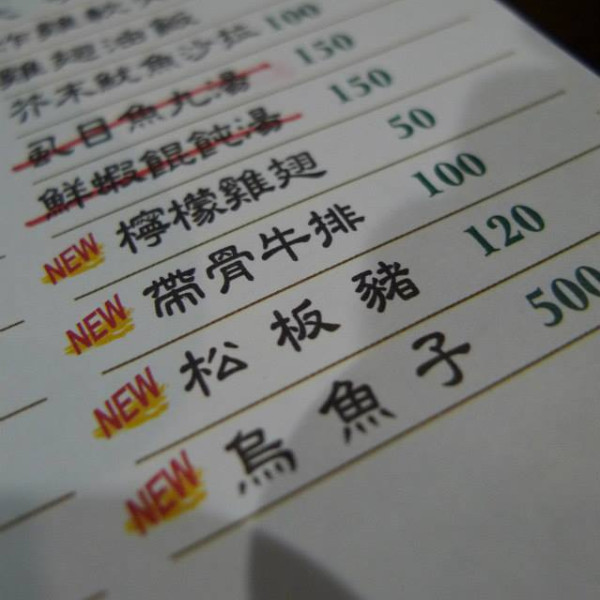 雞翅油飯
芥末魷魚沙拉 100
虱目魚丸湯 150
鮮蝦餛飩湯 150
NEW 檸檬雞翅 50
NEW 帶骨牛排 100
NEW 松板豬 120
NEW 烏魚子 500